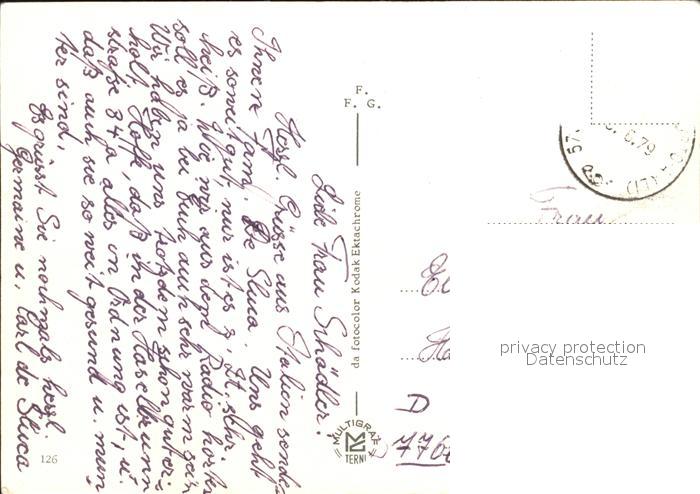 Liebe Frau Schädler!
Herzl. Grüsse aus Italien sendet
Ihnen Fam. De Sluca. Uns geht
es soweit gut, nur ist es z. Zt. sehr
heiß. Wie wir aus dem Radio hörten
soll es ja bei Euch auch sehr warm sein
Wir haben uns trotzdem schon gut er-
holt. Hoffe, daß in der Haselbrunn
straße 84a alles in Ordnung ist, u.
daß auch sie so weit gesund u. mun
ter sind,
Es grüsst Sie nochmals herzl.
Germaine u. Carl de Sluca
126
F.
F. G.
da fotocolor Kodak Ektachrome
MULTIGRAF
TERNI
6.79
57
Frau
D
D 776
privacy protection
Datenschutz